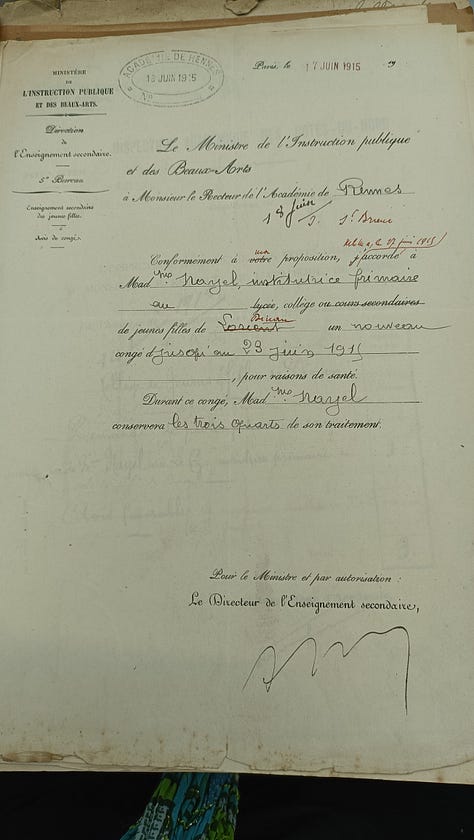 ACADÉMIE DE RENNES
18 JUIN 1915
N°
MINISTÈRE
DE
L'INSTRUCTION PUBLIQUE
ET DES BEAUX-ARTS.
Direction
de
l'Enseignement secondaire.
5e Bureau
Enseignement secondaire
des jeunes filles.
Avis de congé.
Paris, le 17 JUIN 1915 19
Le Ministre de l'Instruction publique
et des Beaux-Arts
à Monsieur le Recteur de l'Académie de Rennes
18 juin
St Brieuc
Conformément à votre proposition, j'accorde à
Mad me Nayel, institutrice primaire
au lycée, collège ou cours secondaires
de jeunes filles de Lorient un nouveau
congé d jusqu'au 23 juin 1915
, pour raisons de santé.
Durant ce congé, Mad me Nayel
conservera les trois quarts de son traitement.
Pour le Ministre et par autorisation :
Le Directeur de l'Enseignement secondaire,